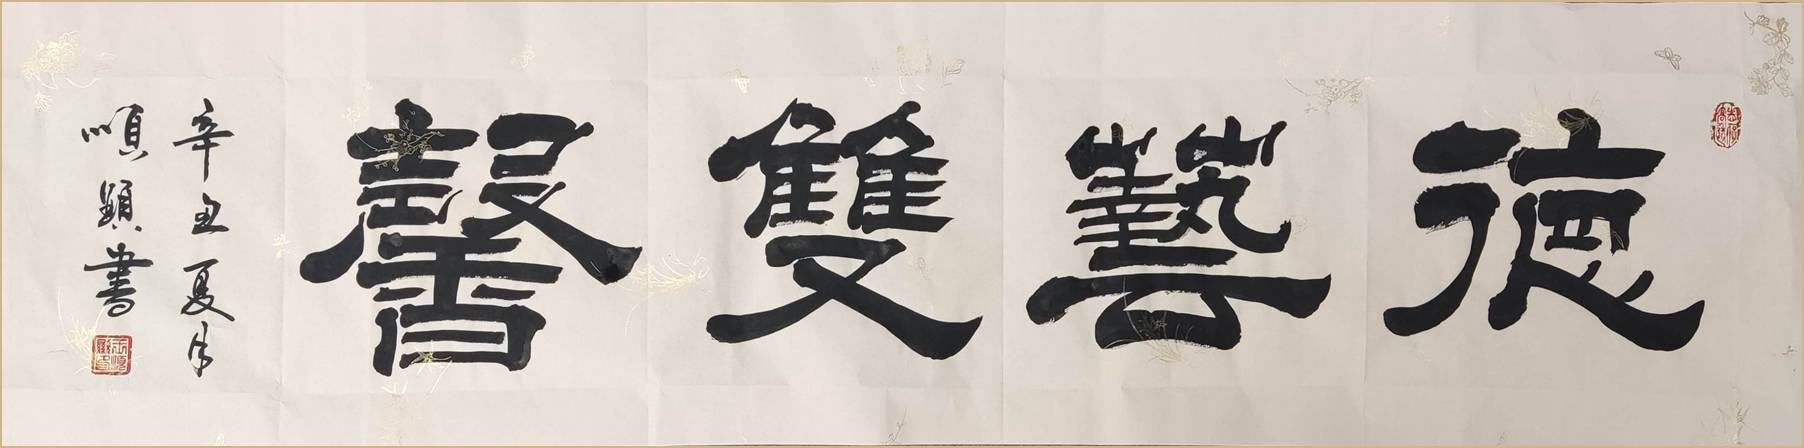 德藝雙馨
辛丑夏月
順顯書